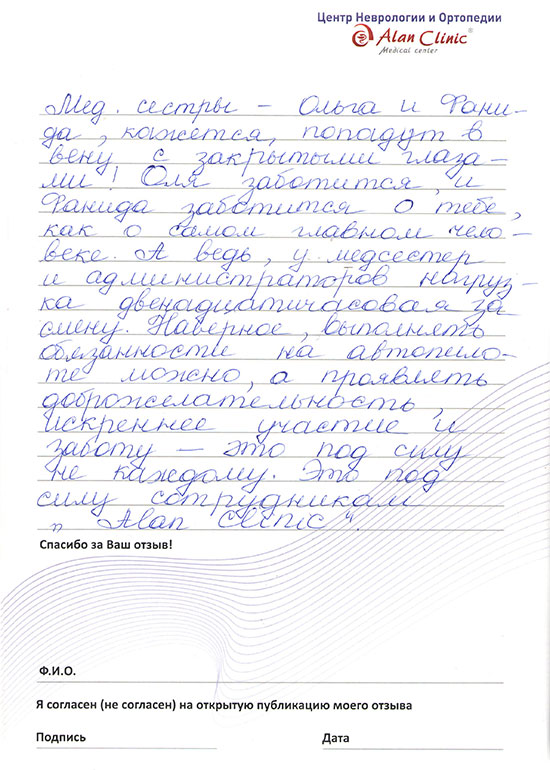 Центр Неврологии и Ортопедии
Alan Clinic®
Medical center
Мед. сестры – Ольга и Фани-
да, кажется, попадут в
вену с закрытыми глаза-
ми! Оля заботится, и
Фанида заботится о тебе,
как о самом главном чело-
веке. А ведь, у медсестер
и администраторов нагруз-
ка двенадцатичасовая за
смену. Наверное, выполнять
обязанности на автопило-
те можно, а проявлять
доброжелательность,
искреннее участие и
заботу – это под силу
не каждому. Это под
силу сотрудникам
„Alan Clinic“.
Спасибо за Ваш отзыв!
Ф.И.О.
Я согласен (не согласен) на открытую публикацию моего отзыва
Подпись Дата